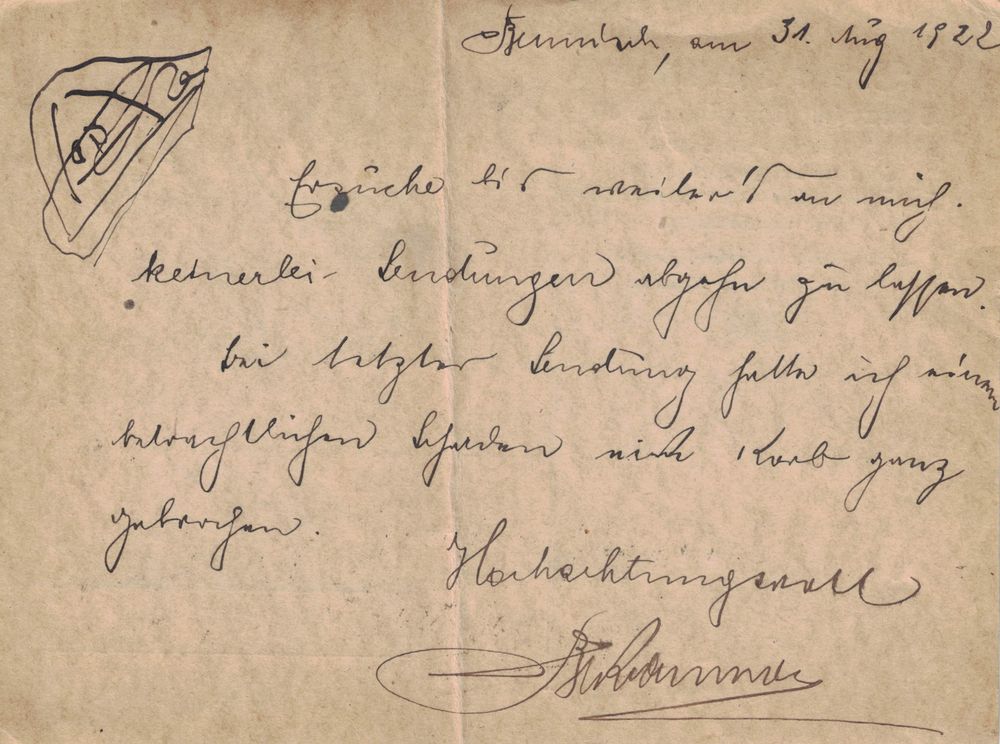 Bennisch, am 31. Aug 1922
Ersuche bis weiter's an mich
keinerlei Sendungen abgehn zu lassen.
Bei letzter Sendung hatte ich einen
betrachtlichen Schaden ein Korb ganz
gebrochen.
Hochachtungsvoll